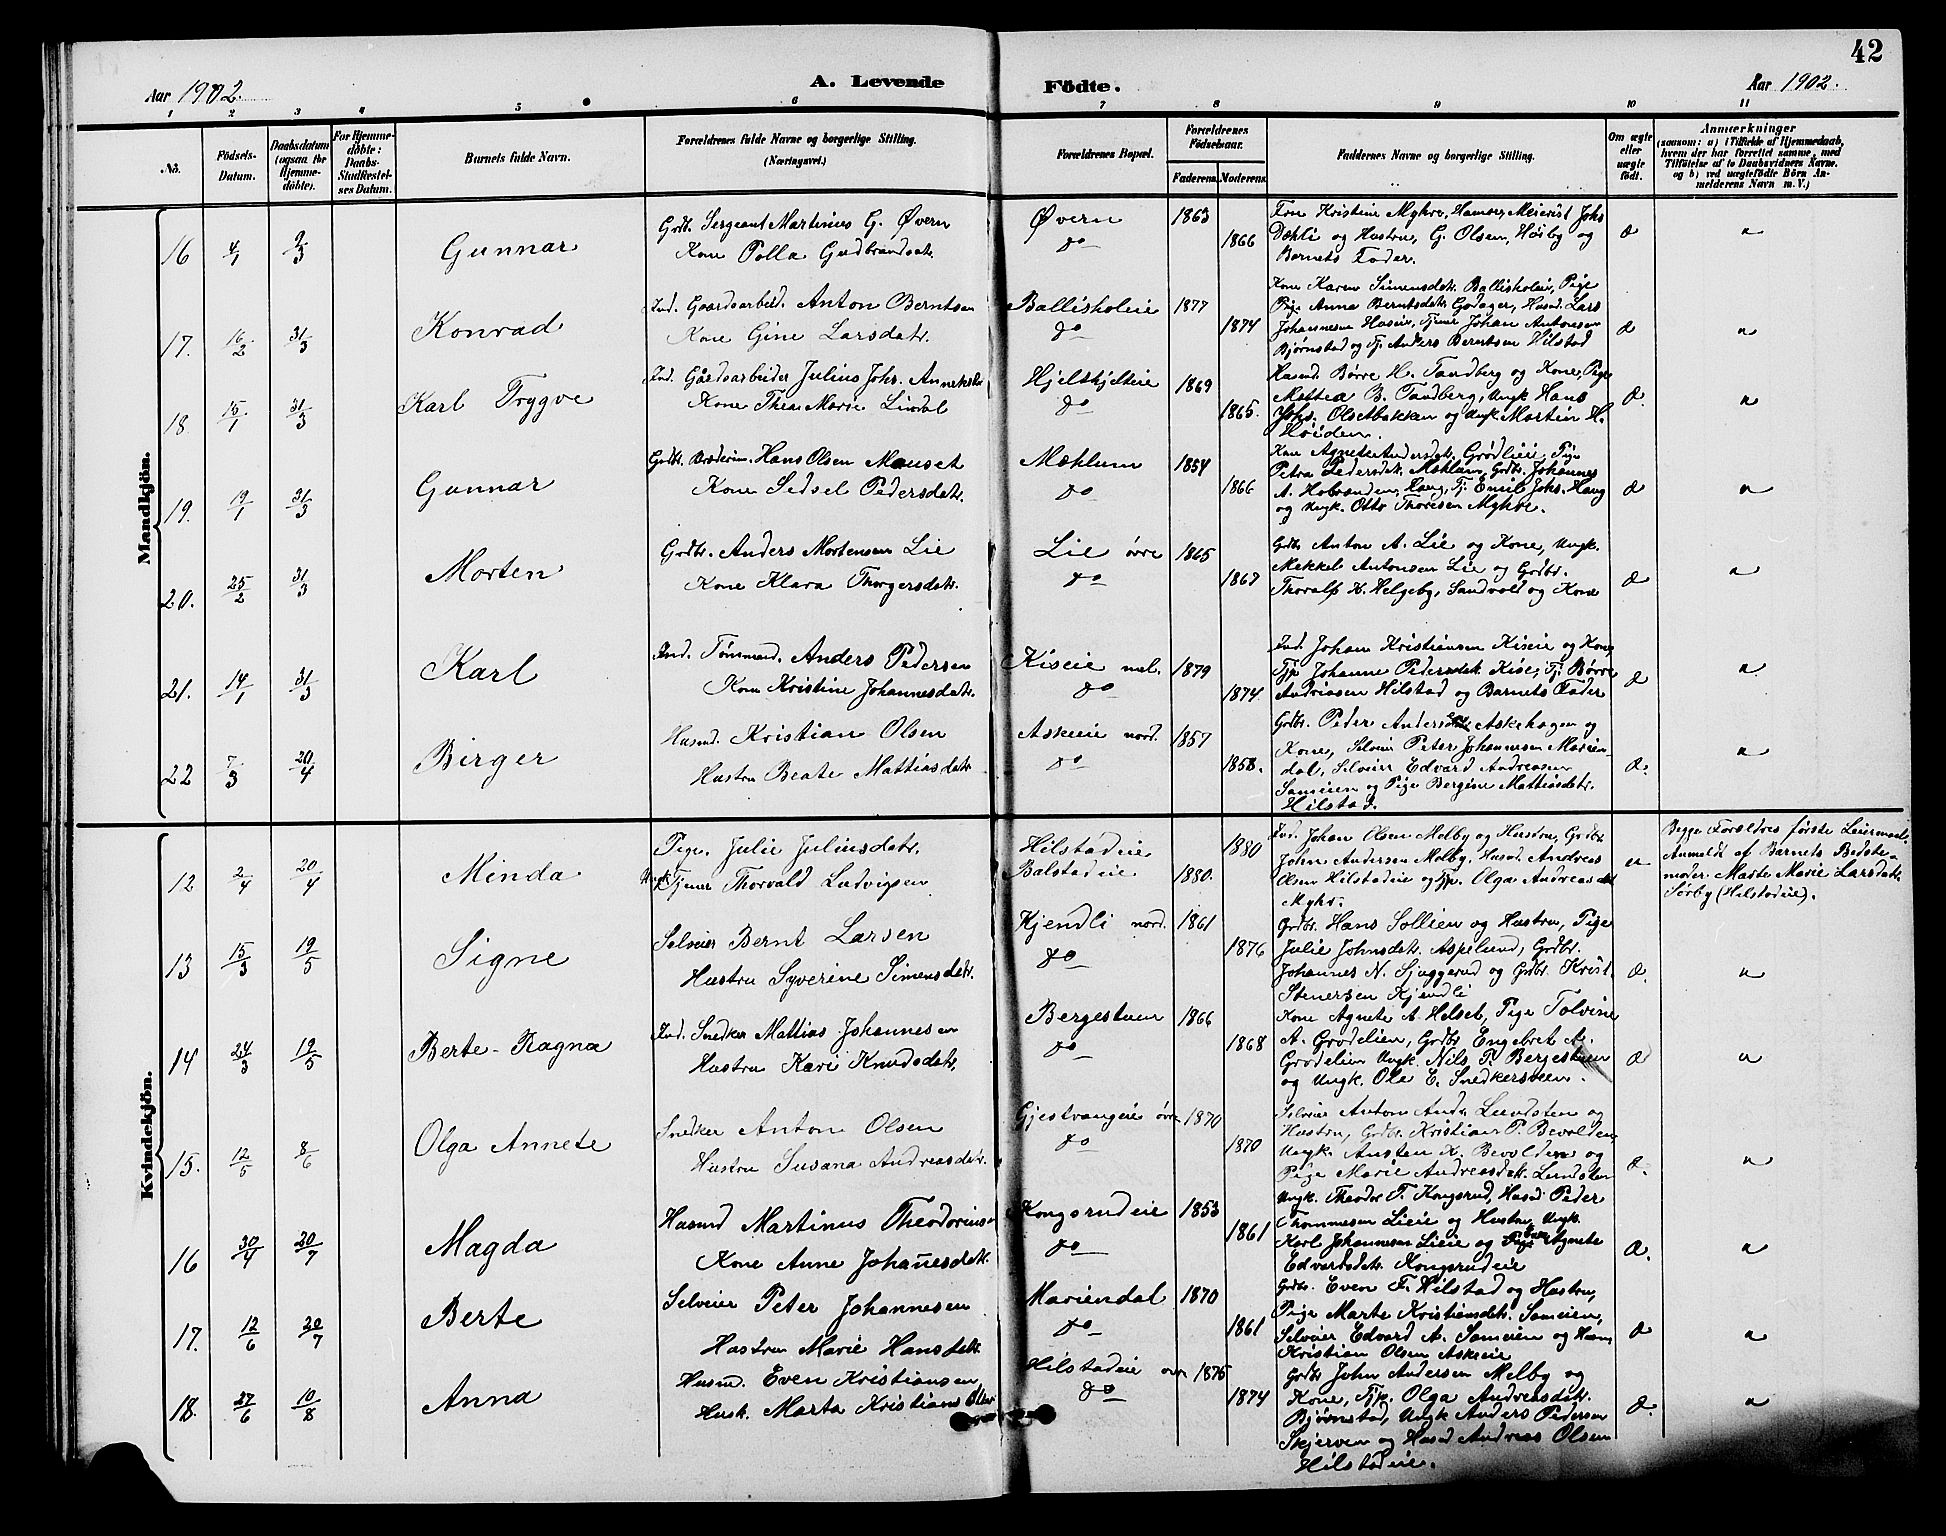 42
Aar 1902.
A. Levende
Födte.
Aar 1902.
1 2 3 4 5 6 7 8 9 10 11
No.
Födsels-Datum.
Daabsdatum (ogsaa for Hjemmedöbte).
For Hjemmedöbte: Daabs-Stadfæstelses Datum.
Barnets fulde Navn.
Forældrenes fulde Navne og borgerlige Stilling.
(Næringsvei.)
Forældrenes Bopæl.
Forældrenes Födselsaar.
Faderens.
Moderens.
Faddernes Navne og borgerlige Stilling.
Om ægte eller uægte født.
Anmærkninger
(saasom: a) i Tilfælde af Hjemmedaab, hvem der har forrettet samme, med Tilföielse af to Daabsvidners Navne. og b) ved uægtefödte Börn Anmelderens Navn m. V.)
Mandkjön.
16 4/1 9/3 Gunnar
Grdb. Sergeant Martinius G. Øvern
Kone Polla Gudbrandsdt.
Øvern
do
1863
1866
Frue Kristine Myhre, Hamar, Meierist Johs
Dæhli og Hustru, G. Olsen, Hösby og
Barnets Fader.
æ
"
17. 16/2 31/3 Konrad
Ind. Gaardsarbeid. Anton Berntsen
Kone Gine Larsdatr.
Ballisholeie
do
1877
1874
Kone Karen Simensdatr. Ballisholeie, Pige
Pige Anna Berntsdatr. Godager, Husmd. Lars
Johannesen Huseie, Tjener Johan Antonsen
Bjørnstad og Tj. Anders Berntsen Hilstad
æ
"
18. 15/1 31/3 Karl Trygve
Ind. Gårdsarbeider Julius Johs.
Kone Thea Marie Lindal
do
1869
1865.
Husmd. Børre H. Tandberg og Kone, Pige
Mathea B. Tandberg, Ungk. Hans
Johs. Olsetbakken og Ungk. Martin H.
Høiden.
æ.
"
19. 19/1 31/3 Gunnar
Grdbr. Hans Olsen Mauset
Kone Sidsel Pedersdatr.
Mæhlum
do
1854
1866
Kone Agnethe Andersdatr. Grödlieie, Pige
Petra Pedersdatr. Mæhlum, Grdbr. Johannes
A. Hobranden, Haug, Tj. Emil Johs. Haug
og Ungk. Otto Thoresen Myhre.
æ
"
20. 25/2 31/3 Morten
Grdbr. Anders Mortensen Lie
Kone Klara Thorgersdatr.
Lie övre
do
1865
1867
Grdbr Anton A. Lie og Kone, Ungk.
Mekkel Antonsen Lie og Grdbr.
Thoralf K. Helgeby, Sandvold og Kone
æ
"
21. 14/1 31/3 Karl
Ind. Tømmermd. Anders Pedersen
Kone Kristine Johannesdatr.
Kiseie mel.
do
1879
1874
Ind. Johan Kristiansen Kiseie og Kone
Tjp. Johanne Pedersdatr. Kise, Tj. Børre
Andreasen Hilstad og Barnets Fader
æ
"
22 7/3 20/4 Birger
Husmd. Kristian Olsen
Hustru Beate Mattiasdatr
Askeie nord.
do
1857
1858.
Grdbr. Peder Andersen Askehagen og
Kone, Selveier Peter Johannesen Marien-
dal, Selveier Edvard Andreasen
Sameien og Pige Bergine Mattiasdatr.
Hilstad.
æ.
"
Kvindekjön.
12 2/4 20/4 Minda
Pige. Julie Juliusdatr.
Ungk. Tjener Thorvald Ludvigsen
Hilstadeie
Balstadeie
1880.
1880
Ind. Johan Olsen Melby og Hustru, Grdbr.
John Andersen Melby, Husmd. Andreas
Olsen Hilstadeie og Tjp. Olga Andreasdatr
Myhr.
u
Begge Forældres første Leiermaal.
Anmeldt af Barnets Bedste-
moder Marte Marie Larsdatr.
Sørby (Hilstadeie).
13 15/3 19/5 Signe
Selveier Bernt Larsen
Hustru Syverine Simensdatr.
Kjendli nord.
do
1861
1876
Grdbr. Hans Sollien og Hustru, Pige
Julie Johnsdatr. Aspelund, Grdbr.
Johannes N. Sjuggerud og Grdbr. Krist.
Stenersen Kjendli
æ.
"
14 24/3 19/5 Berte-Ragna
Ind. Snedker Mattias Johannesen
Hustru Kari Knudsdatr.
Bergestuen
do
1866
1868
Kone Agnete A. Helset, Pige Tolvine
A. Grödelien, Grdbr Engebret A.
Grödelien Ungk. Nils P. Bergestuen
og Ungk. Ole E. Snedkersveen.
æ
"
15. 12/5 8/6 Olga Annete
Snedker Anton Olsen
Hustru Susana Andreasdatr.
Gjestvangeie övre
do
1870
1870
Selveier Anton Andr. Lundsten og
Hustru, Grdbr. Kristian P. Bevolden,
Ungk. Austen K. Bevolden og
Pige Marie Andreasdatr. Lundsten
æ.
"
16 30/4 20/7 Magda
Husmd Martinus Theodorius
Kone Anne Johañesdatr.
Kongsrudeie
do
1853
1861
Ungk. Theodor T. Kongsrud, Husmd Peder
Thommesen Lieie og Hustru, Ungk.
Karl Johannesen Lieie og Agnete
Edvardsdatr. Kongsrudeie
æ.
"
17. 12/6 20/7 Berte
Selveier Peter Johannesen
Hustru Marie Hansdatr.
Mariendal
do
1870
1861
Grdbr. Even F. Hilstad og Hustru,
Pige Marte Kristiansdatr. Sameien,
Selveier Edvard A. Sameien og Husm.
Kristian Olsen Askeeie
æ
"
18. 27/6 10/8 Anna
Husmd. Even Kristiansen
Husk. Marta Kristians
Hilstadeie
do
1875
1874
Grdbr John Andersen Melby og
Kone, Tjp. Olga Andreasdatr.
Bjørnstad, Ungk Anders Pedersen
Skjerven og Husmd Andreas Olsen
Hilstadeie.
æ.
"